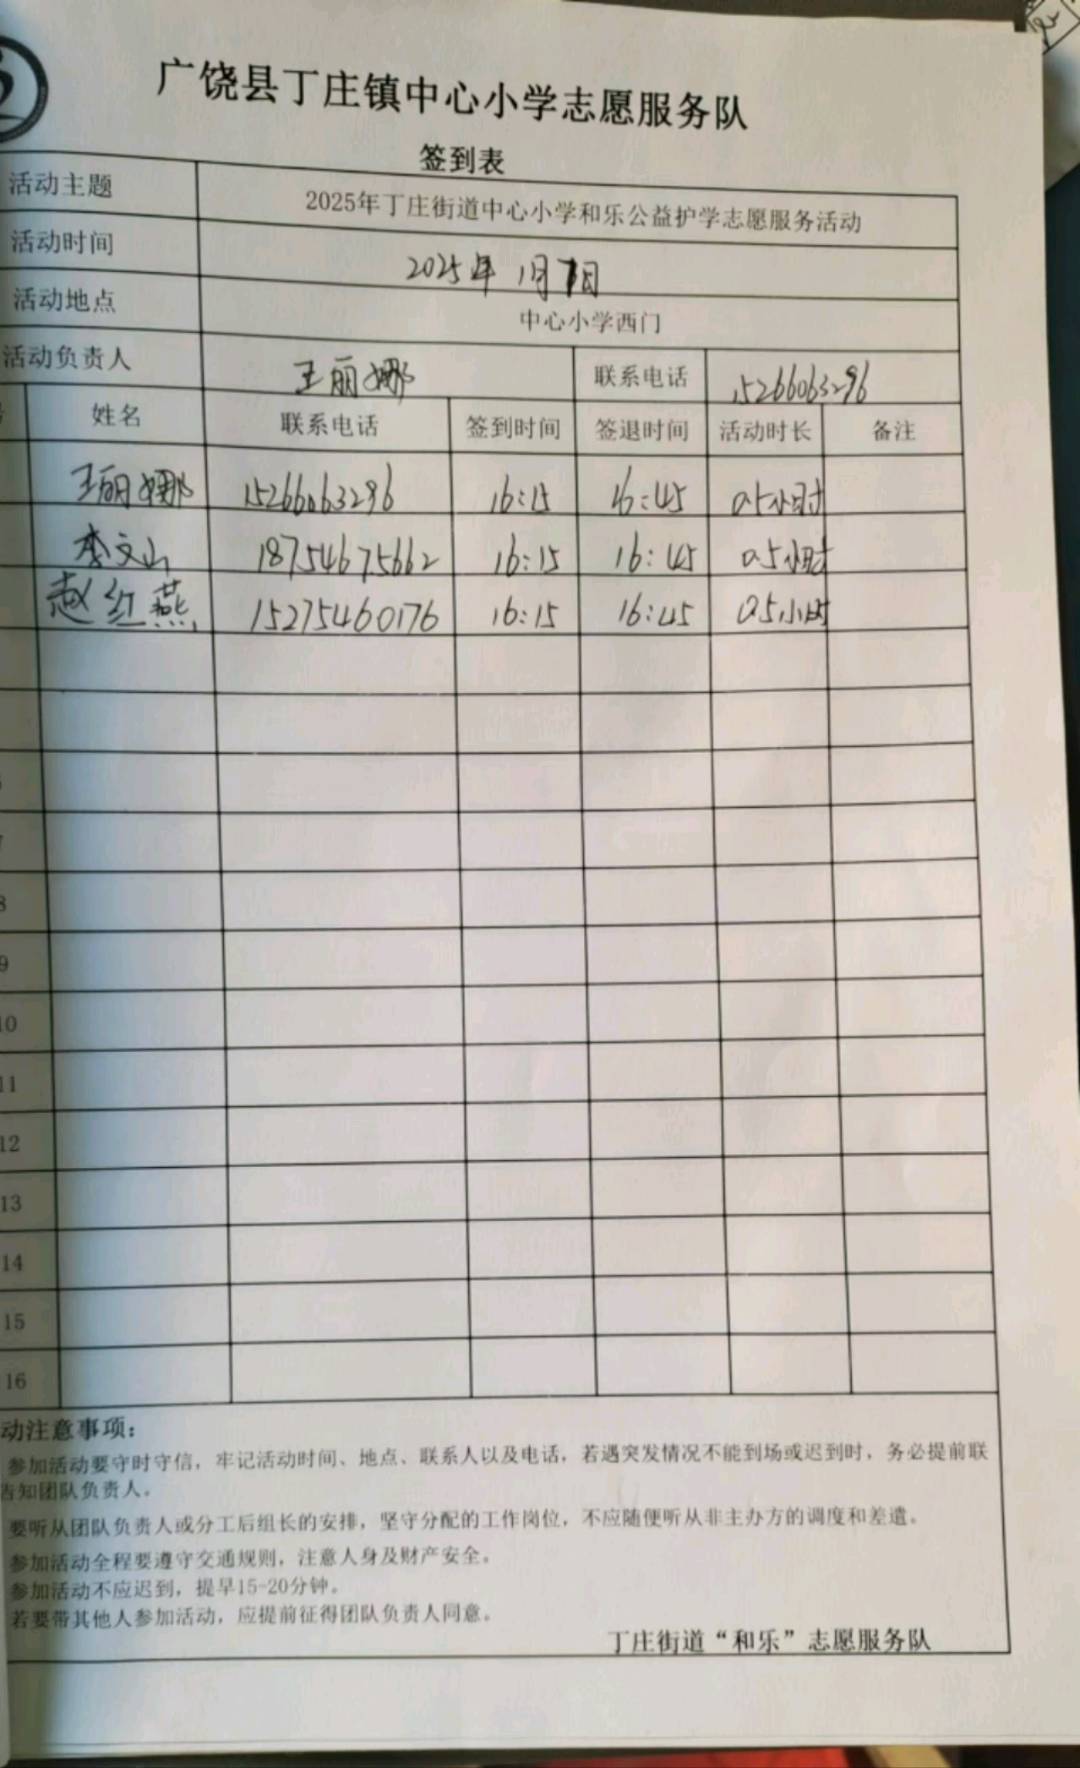 广饶县丁庄镇中心小学志愿服务队
签到表
活动主题 2025年丁庄街道中心小学和乐公益护学志愿服务活动
活动时间 2025年1月7日
活动地点 中心小学西门
活动负责人 王丽娜 联系电话 15266063296
姓名 联系电话 签到时间 签退时间 活动时长 备注
王丽娜 15266063296 16:15 16:45 0.5小时
李文山 18754675662 16:15 16:45 0.5小时
赵红燕 15275460176 16:15 16:45 0.5小时
8
9
10
11
12
13
14
15
16
动注意事项：
参加活动要守时守信，牢记活动时间、地点、联系人以及电话，若遇突发情况不能到场或迟到时，务必提前联
告知团队负责人。
要听从团队负责人或分工后组长的安排，坚守分配的工作岗位，不应随便听从非主办方的调度和差遣。
参加活动全程要遵守交通规则，注意人身及财产安全。
参加活动不应迟到，提早15-20分钟。
若要带其他人参加活动，应提前征得团队负责人同意。
丁庄街道“和乐”志愿服务队